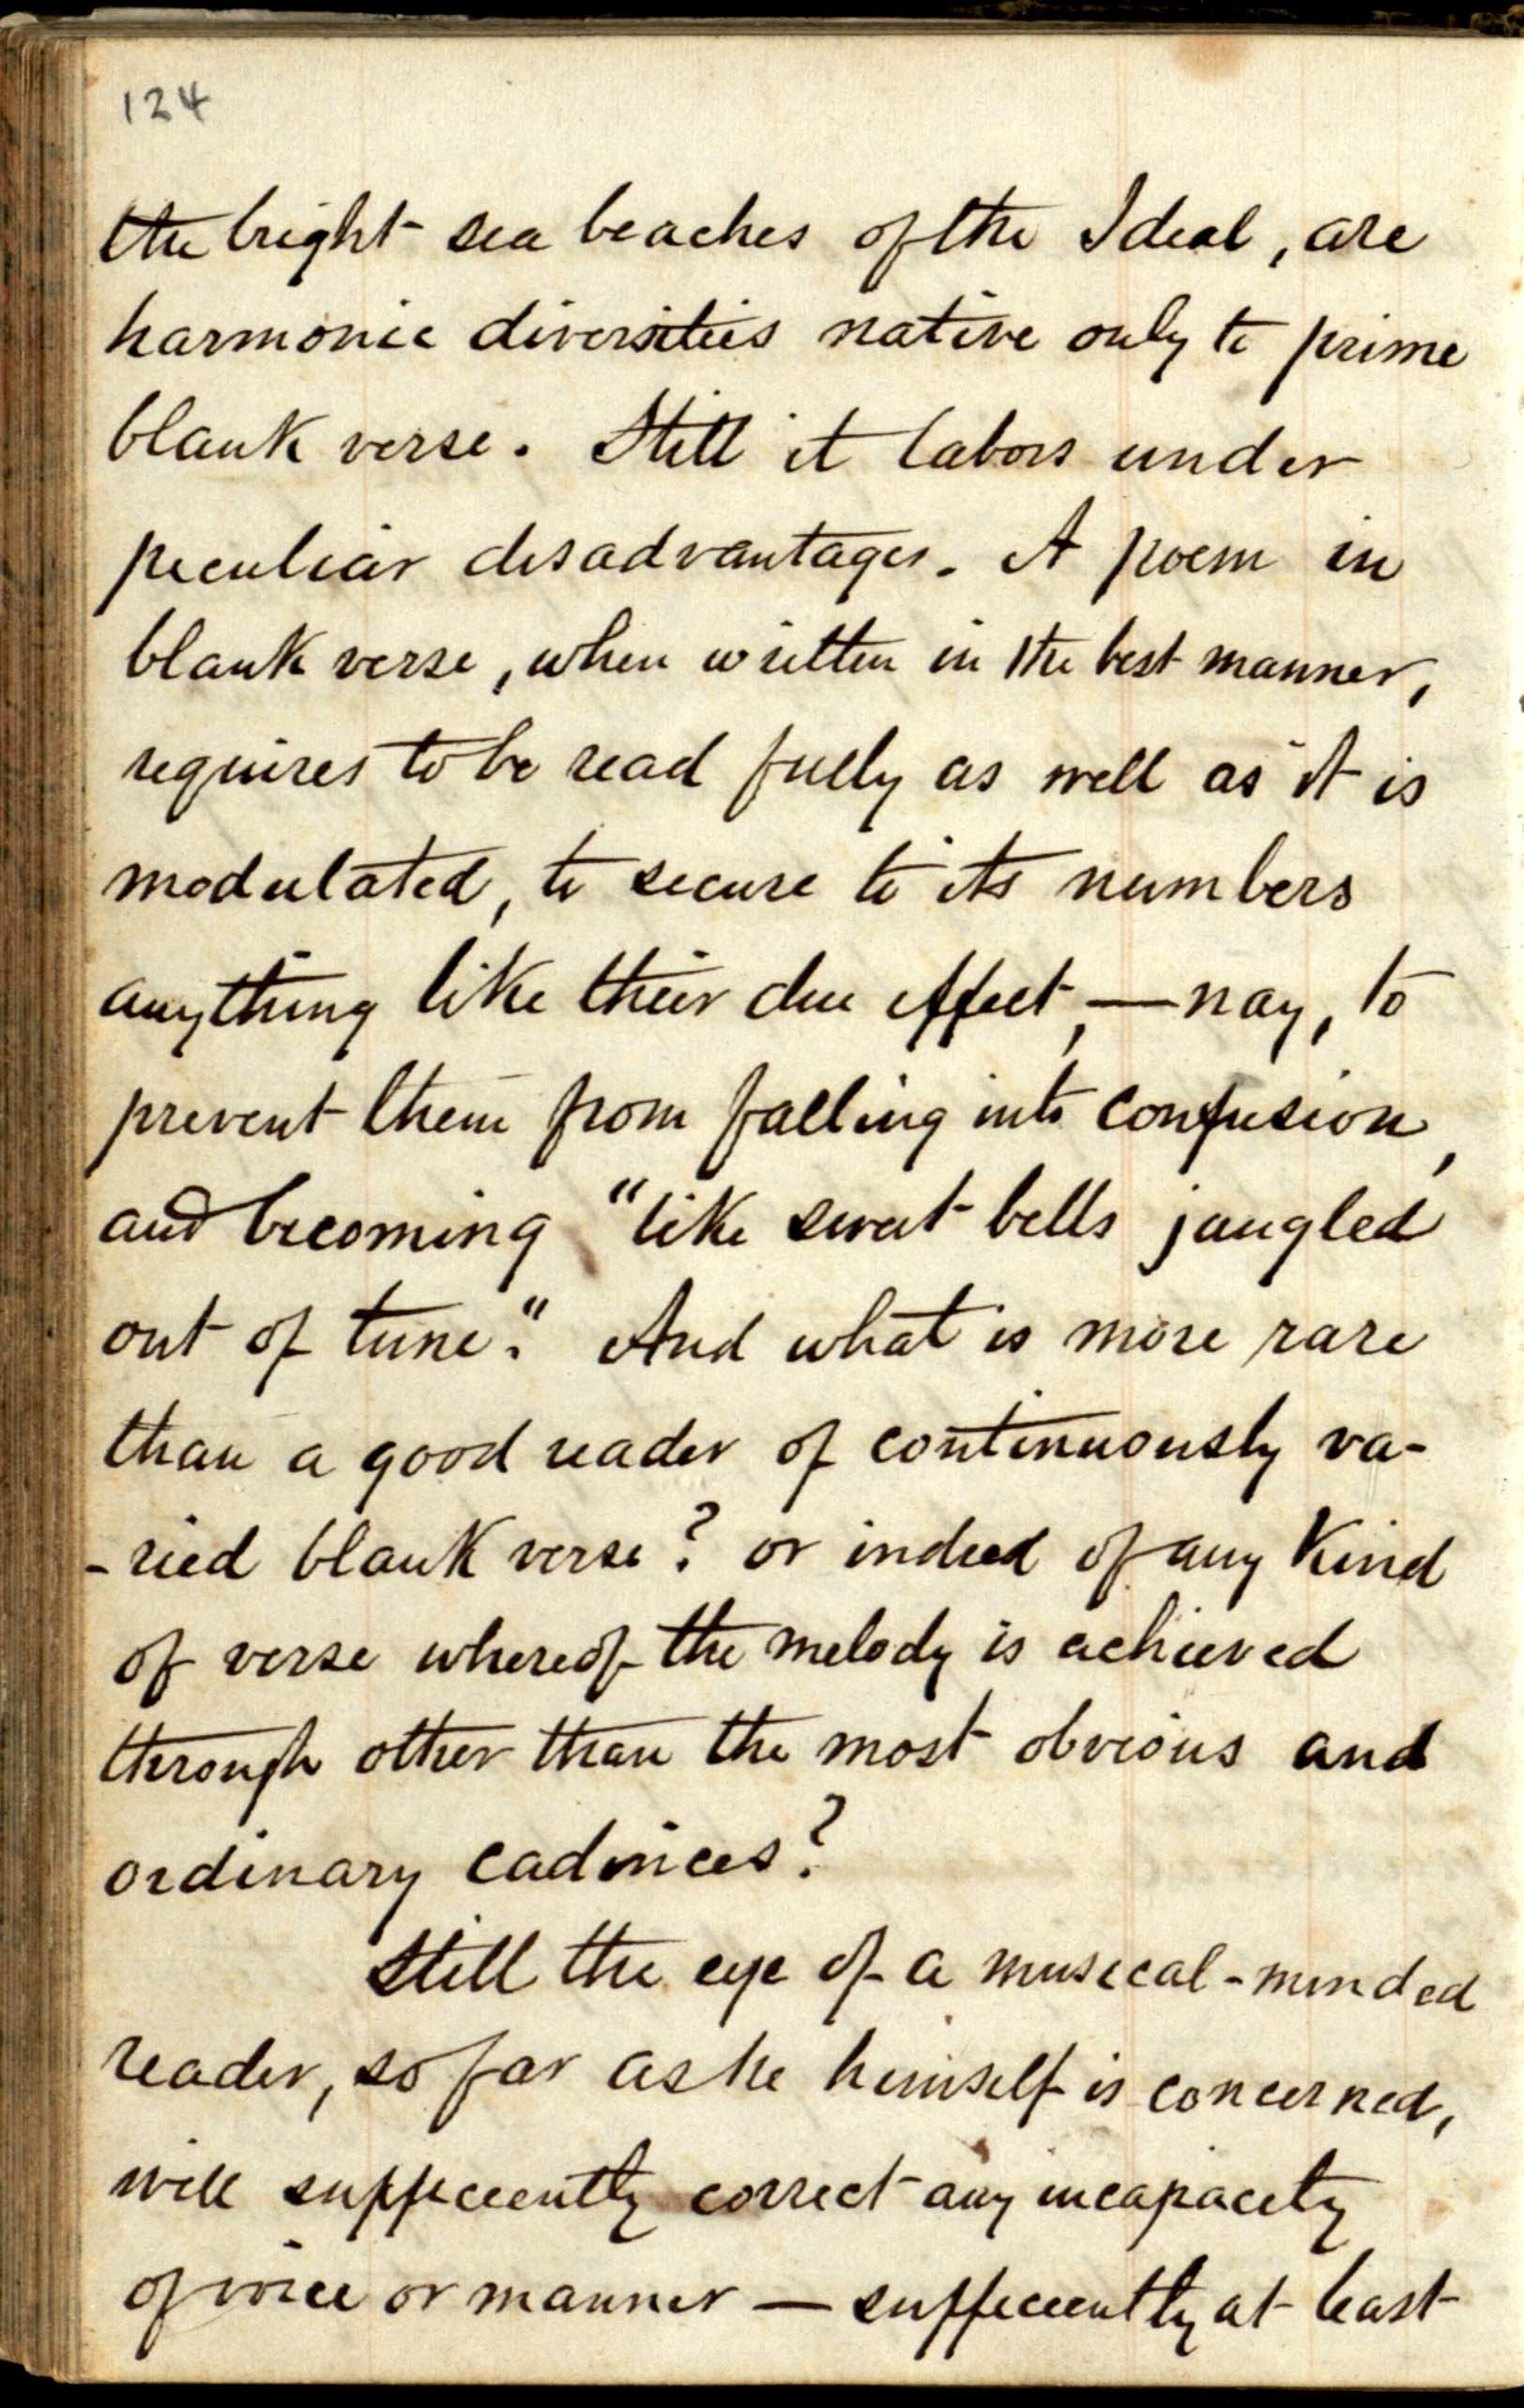 124
the bright sea beaches of the Ideal, are
harmonic diversities native only to prime
blank verse. Still it labors under
peculiar disadvantages. A poem in
blank verse, when written in the best manner,
requires to be read fully as well as it is
modulated, to secure to its numbers
anything like their due effect, — nay, to
prevent them from falling into confusion,
and becoming "like sweet bells jangled
out of tune." And what is more rare
than a good reader of continuously va-
-ried blank verse? or indeed of any kind
of verse whereof the melody is achieved
through other than the most obvious and
ordinary cadences?
Still the eye of a musical-minded
reader, so far as he himself is concerned,
will sufficiently correct any incapacity
of voice or manner — sufficiently at least